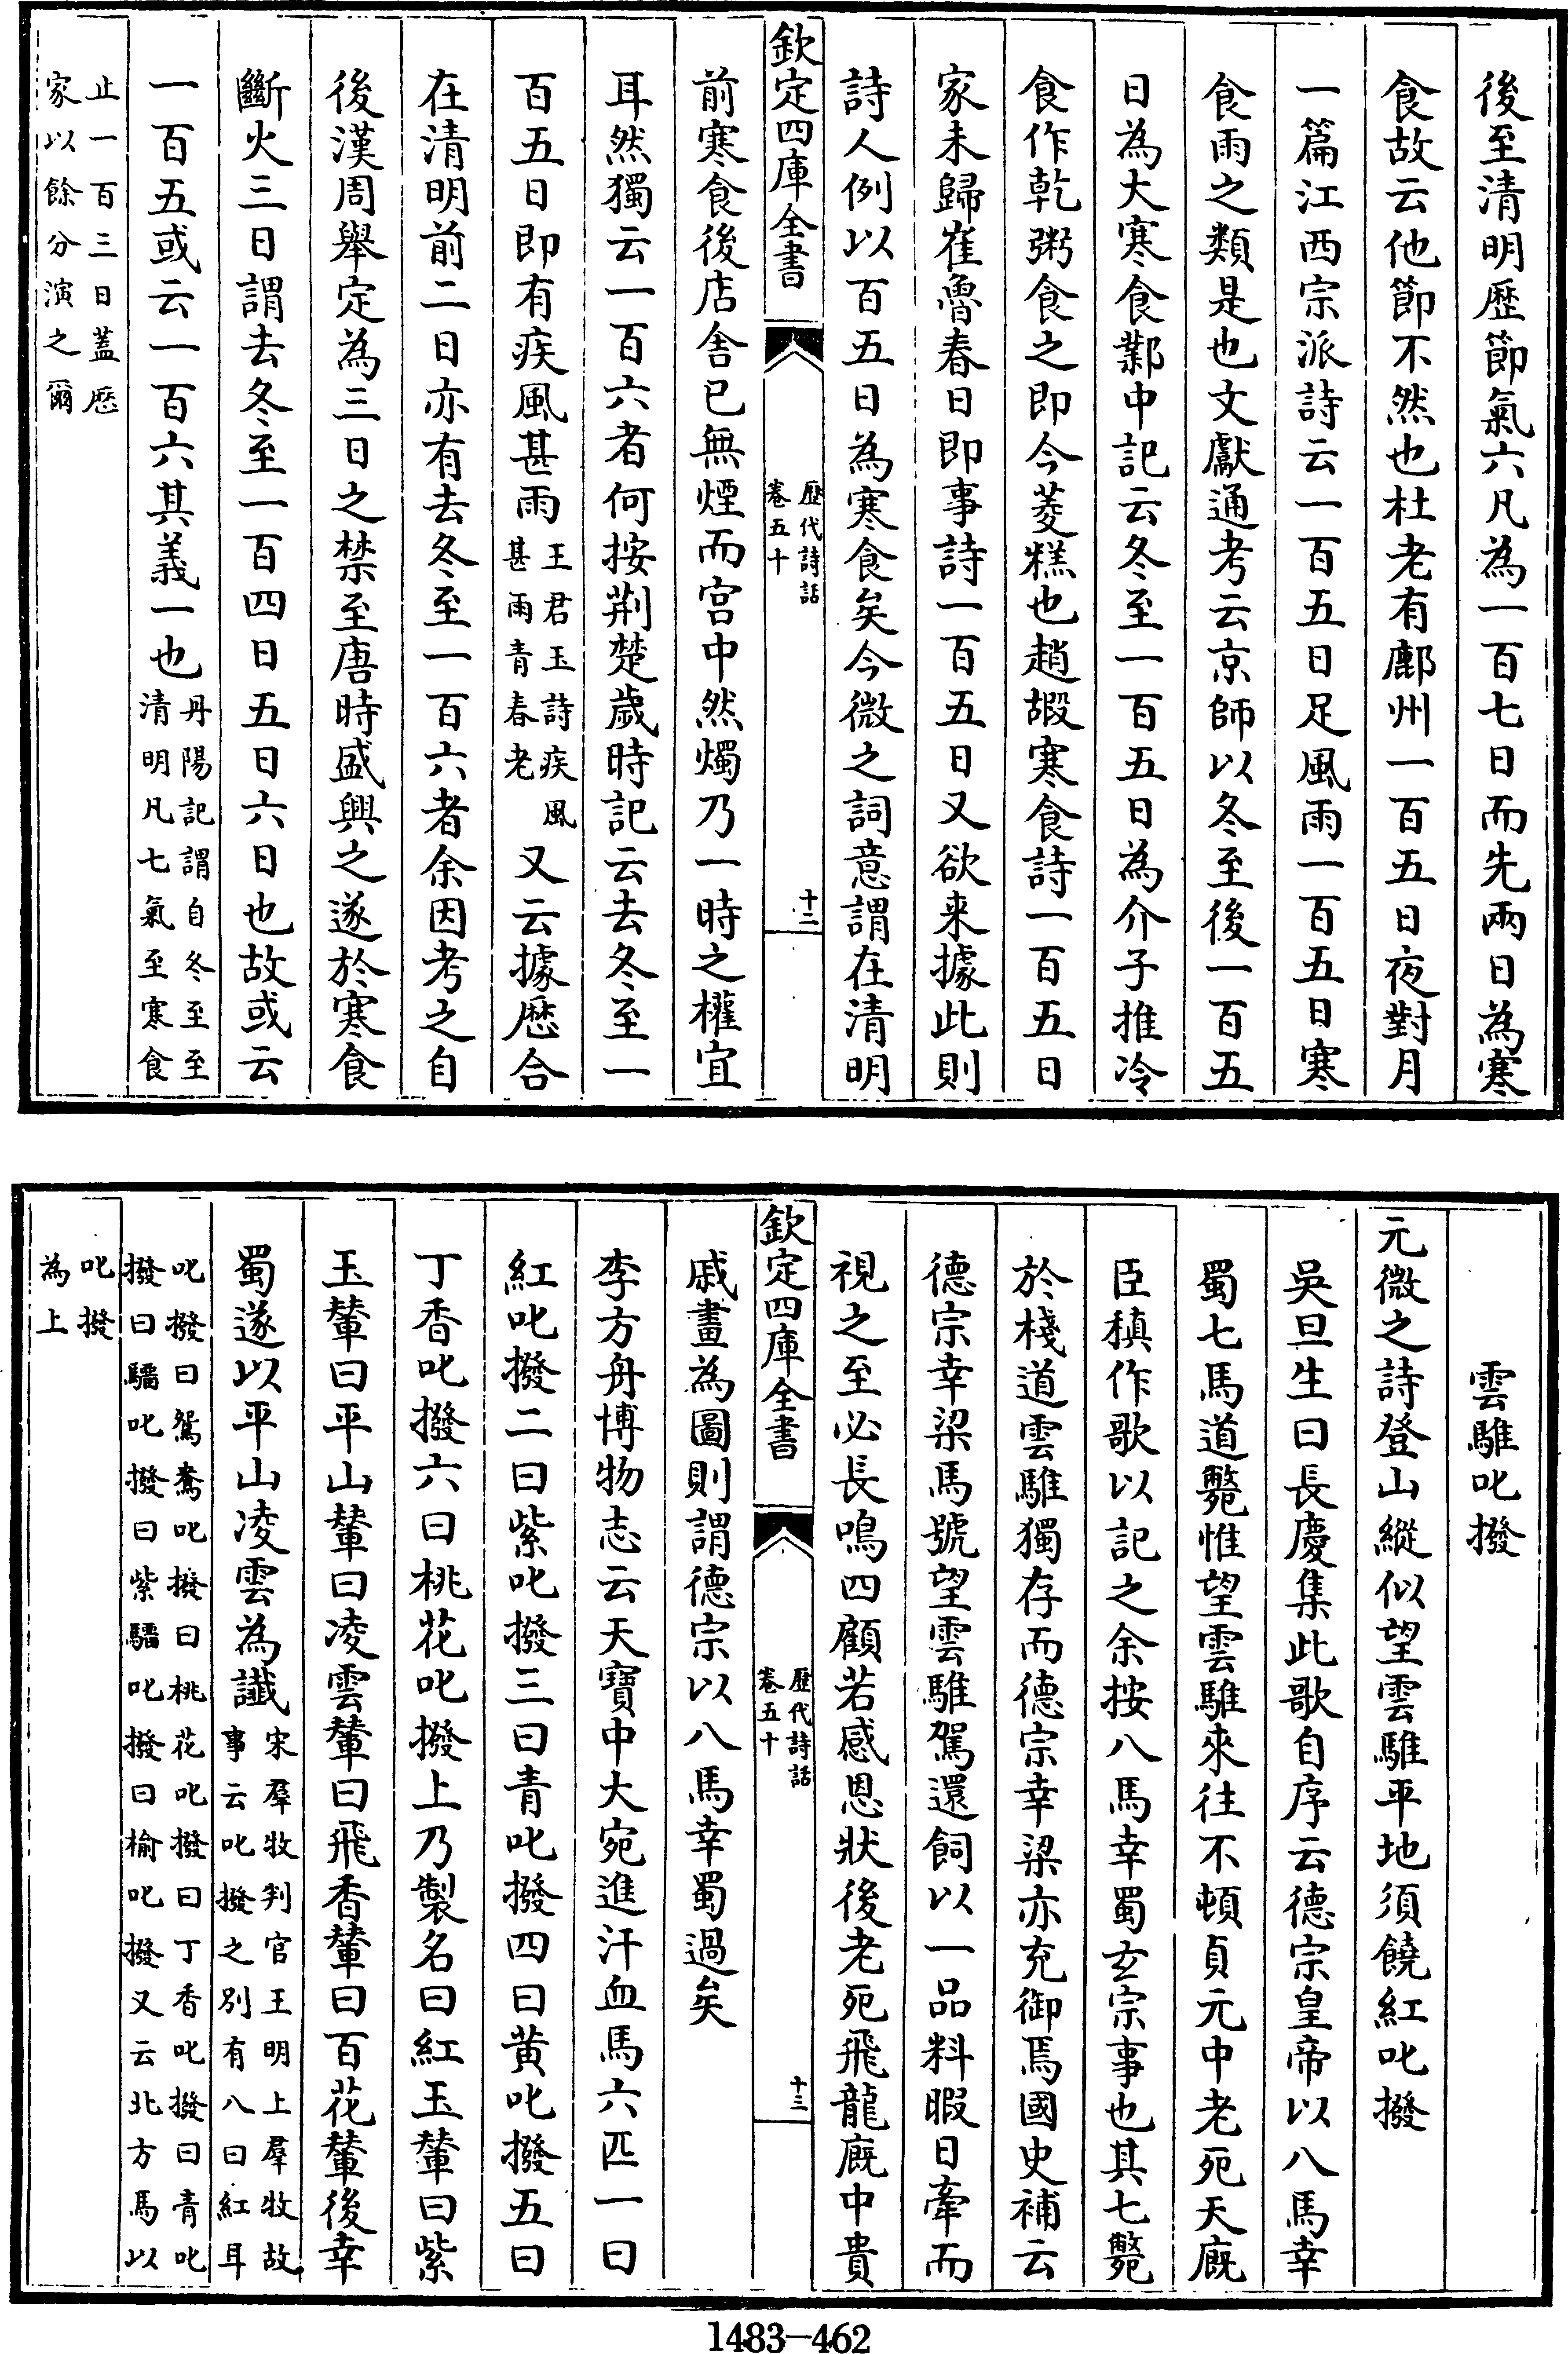 後至清明歷節氣六凡為一百七日而先兩日為寒
食故云他節不然也杜老有鄜州一百五日夜對月
一篇江西宗派詩云一百五日足風雨一百五日寒
食雨之類是也文獻通考云京師以冬至後一百五
日為大寒食鄴中記云冬至一百五日為介子推冷
食作乾粥食之即今䔖糕也趙嘏寒食詩一百五日
家未歸崔魯春日即事詩一百五日又欲来據此則
詩人例以百五日為寒食矣今微之詞意謂在清明
欽定四庫全書
歷代詩話
卷五十
十二
前寒食後店舍已無煙而宫中然燭乃一時之權宜
耳然獨云一百六者何按荆楚歲時記云去冬至一
百五日即有疾風甚雨王君玉詩疾風
甚雨青春老又云據歷合
在清明前二日亦有去冬至一百六者余因考之自
後漢周舉定為三日之禁至唐時盛興之遂於寒食
斷火三日謂去冬至一百四日五日六日也故或云
一百五或云一百六其義一也丹陽記謂自冬至至
清明凡七氣至寒食
止一百三日蓋歷
家以餘分演之爾
雲騅叱撥
元微之詩登山縱似望雲騅平地須饒紅叱撥
吳旦生曰長慶集此歌自序云德宗皇帝以八馬幸
蜀七馬道斃惟望雲騅來往不頓貞元中老死天廐
臣稹作歌以記之余按八馬幸蜀玄宗事也其七斃
於棧道雲騅獨存而德宗幸梁亦充御焉國史補云
德宗幸梁馬號望雲騅駕還飼以一品料暇日牽而
視之至必長鳴四顧若感恩狀後老死飛龍廐中貴
欽定四庫全書
歷代詩話
卷五十
十三
戚畫為圖則謂德宗以八馬幸蜀過矣
李方舟博物志云天寶中大宛進汗血馬六匹一曰
紅叱撥二曰紫叱撥三曰青叱撥四曰黄叱撥五曰
丁香叱撥六曰桃花叱撥上乃製名曰紅玉輦曰紫
玉輦曰平山輦曰凌雲輦曰飛香輦曰百花輦後幸
蜀遂以平山凌雲為讖宋羣牧判官王明上羣牧故
事云叱撥之别有八曰紅耳
叱撥曰鴛鴦叱撥曰桃花叱撥曰丁香叱撥曰青叱
撥曰騮叱撥曰紫騮叱撥曰榆叱撥又云北方馬以
叱撥
為上
1483-462